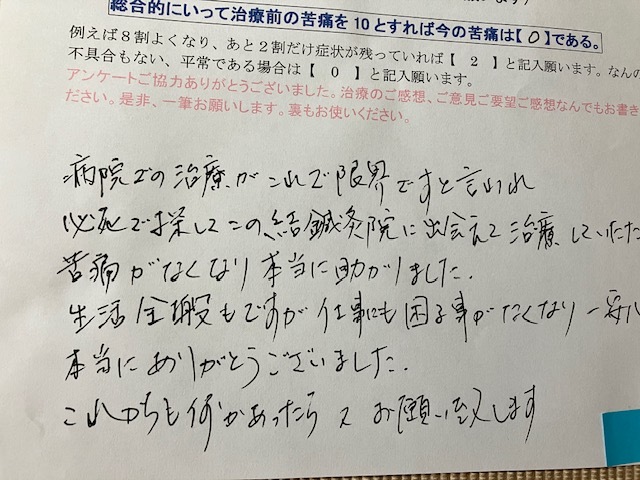 総合的にいって治療前の苦痛を10とすれば今の苦痛は【 0 】である。
例えば8割よくなり、あと2割だけ症状が残っていれば【 2 】と記入願います。なんの
不具合もない、平常である場合は【 0 】と記入願います。
アンケートご協力ありがとうございました。治療のご感想、ご意見ご要望ご感想なんでもお書き
ださい。是非、一筆お願いします。裏もお使いください。
病院での治療がこれで限界ですと言われ
必死で探してこの結鍼灸院に出会えて治療していただ
苦痛がなくなり本当に助かりました.
生活全般もですが仕事にも困る事がなくなり一安心
本当にありがとうございました.
これからも何かあったら お願い致します